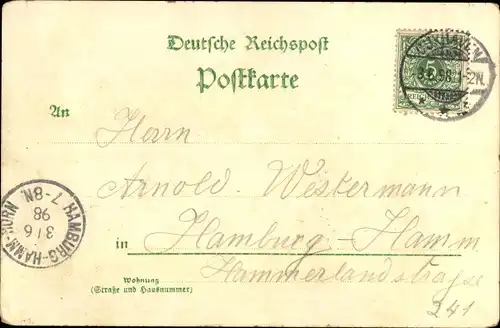 Deutsche Reichspost
Postkarte
5
3.6.98. 1-2N.
An
Herrn
Arnold Westermann
in Hamburg-Hamm
Hammerlandstraße
241
Wohnung
(Straße und Hausnummer)
HAMBURG-HAMM-HORN
3/6
98
7-8N.